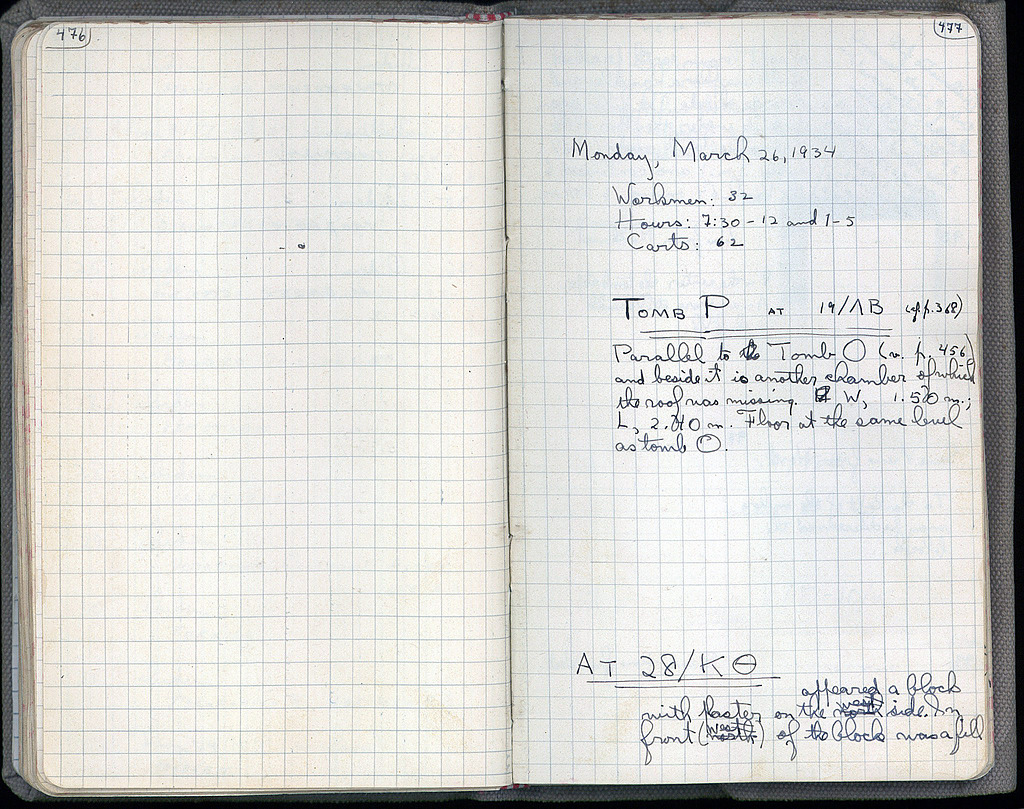 476
477
Monday, March 26, 1934
Workmen: 32
Hours: 7:30 - 12 and 1-5
Carts: 62
TOMB P AT 19/ΛB (cf. p. 368)
Parallel to Tomb O (v. p. 456)
and beside it is another chamber of which
the roof was missing. W, 1.50 m.;
L, 2.10 m. Floor at the same level
as tomb O.
AT 28/KΘ
appeared a block
with plaster on the west side. In
front (west) of the block was a fill